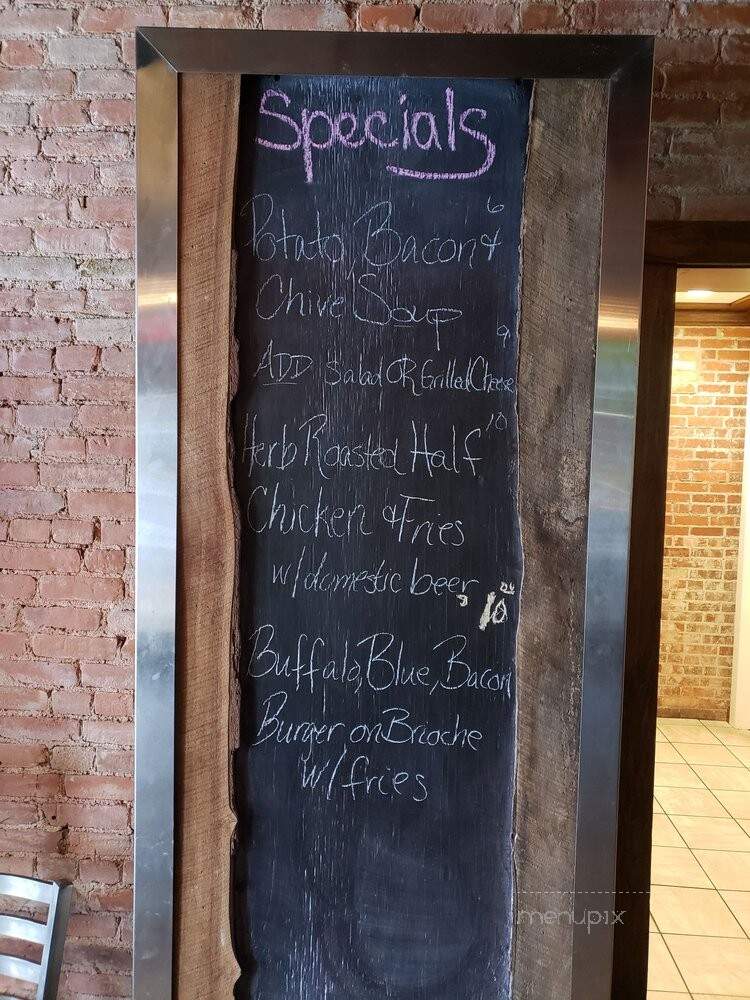 Specials
Potato, Bacon & 6
Chive Soup
ADD Salad OR Grilled Cheese 9
Herb Roasted Half 10
Chicken & Fries
w/domestic beer
10
Buffalo, Blue, Bacon
Burger on Brioche
w/fries
menupix